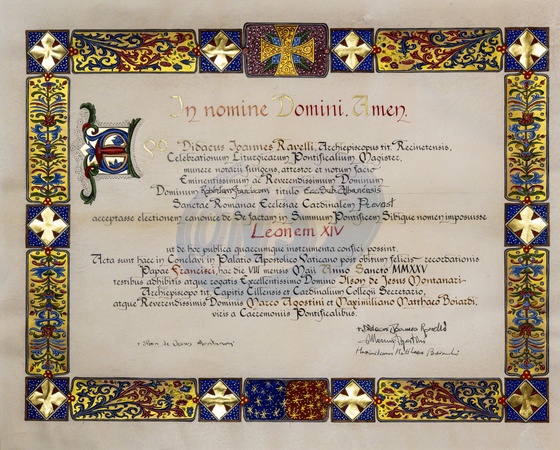 In nomine Domini. Amen.
Ego Didacus Joannes Ravelli, Archiepiscopus tit. Recinetensis,
Celebrationum Liturgicarum Pontificalium Magister,
munere notarii fungens, attestor et notum facio
Eminentissimum ac Reverendissimum Dominum
Dominum Robertum Franciscum titulo Eccl. Sub. Albanensis
Sanctae Romanae Ecclesiae Cardinalem Prevost
acceptasse electionem canonice de Se factam in Summum Pontificem Sibique nomen imposuisse
Leonem XIV
ut de hoc publica quaecumque instrumenta confici possint.
Acta sunt haec in Conclavi in Palatio Apostolico Vaticano post obitum felicis recordationis
Papae Francisci, hac die VIII mensis Maii Anno Sancto MMXXV
testibus adhibitis atque rogatis Excellentissimo Domino Ilson de Jesus Montanari
Archiepiscopo tit. Capitis Cillensis et Cardinalium Collegii Secretario,
atque Reverendissimis Dominis Marco Agostini et Maximiliano Matthaeo Boiardi,
viris a Caeremoniis Pontificalibus.
+ Didacus Joannes Ravelli
+ Ilson de Jesus Montanari
Marcus Agostini
Maximilianus Matthaeus Boiardi